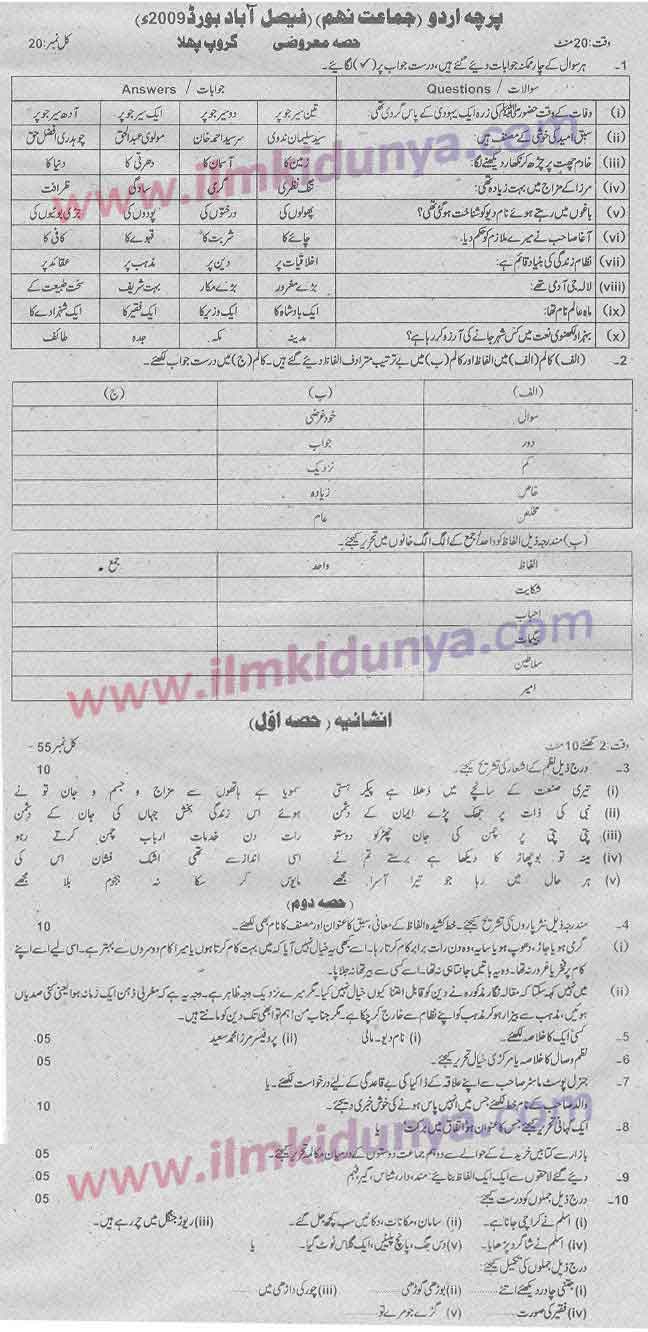 پرچہ اردو (جماعت نہم) (فیصل آباد بورڈ 2009ء)
وقت: 20 منٹ حصہ معروضی گروپ پہلا کل نمبر: 20
1۔ ہر سوال کے چار ممکنہ جوابات دیے گئے ہیں، درست جواب پر (✓) لگائیے۔
سوالات / Questions جوابات / Answers
(i) وفات کے وقت حضور ﷺ کی زرہ ایک یہودی کے پاس گروی تھی: تین سیر جو پر دو سیر جو پر ایک سیر جو پر آدھ سیر جو پر
(ii) سبق امید کی خوشی کے مصنف ہیں: سید سلیمان ندوی سرسید احمد خان مولوی عبدالحق چوہدری افضل حق
(iii) خادم چھت پر چڑھ کر نکھار دیکھنے لگا: زمین کا آسمان کا دھرتی کا دنیا کا
(iv) مرزا کے مزاج میں بہت زیادہ تھی: تنگ نظری گرمی سادگی ظرافت
(v) باغوں میں رہتے ہوئے نام دیو کو شناخت ہو گئی تھی؟ پھولوں کی درختوں کی پودوں کی جڑی بوٹیوں کی
(vi) آغا صاحب نے میرے ملازم کو حکم دیا۔ چائے کا شربت کا قہوے کا کافی کا
(vii) نظام زندگی کی بنیاد قائم ہے: اخلاقیات پر دین پر مذہب پر عقائد پر
(viii) لالہ جی آدمی تھے: بڑے مغرور بڑے مکار بہت شریف سخت طبیعت کے
(ix) ماہ عالم نام تھا: ایک بادشاہ کا ایک وزیر کا ایک فقیر کا ایک شہزادے کا
(x) بہزاد لکھنوی نعت میں کس شہر جانے کی آرزو کر رہا ہے؟ مدینہ مکہ جدہ طائف
2۔ (الف) کالم (الف) میں الفاظ اور کالم (ب) میں بے ترتیب مترادف الفاظ دیے گئے ہیں۔ کالم (ج) میں درست جواب لکھیے۔
(الف) (ب) (ج)
سوال خود غرضی
دور جواب
کم نزدیک
خاص زیادہ
مخلص عام
(ب) مندرجہ ذیل الفاظ کو واحد/جمع کے الگ الگ خانوں میں تحریر کیجئے۔
الفاظ واحد جمع
شکایت
احباب
بیگمات
سلاطین
امیر
انشائیہ (حصہ اوّل)
وقت: 2 گھنٹے 10 منٹ کل نمبر 55-
3۔ درج ذیل نظم کے اشعار کی تشریح کیجئے۔ 10
(i) تیری صنعت کے سانچے میں ڈھلا ہے پیکر ہستی سمویا ہے ہاتھوں سے مزاج و جسم و جان تو نے
(ii) نبی کی ذات پر جھک پڑے ایمان کے دشمن ہوئے اس زندگی بخش جہاں کی جان کے دشمن
(iii) چپے چپے پر چمن کی جان چھڑکو دوستو رات دن خدمات ارباب چمن کرتے رہو
(iv) مینہ تو بوچھاڑ کا دیکھا ہے برستے تم نے اسی انداز سے تھی اشک فشاں اس کی
(v) ہر حال میں رہا جو تیرا آسرا مجھے مایوس کر سکا نہ ہجوم بلا مجھے
(حصہ دوم)
4۔ مندرجہ ذیل نثر پاروں کی تشریح کیجئے۔ خط کشیدہ الفاظ کے معانی، سبق کا عنوان اور مصنف کا نام بھی لکھئے۔ 10
(i) گرمی ہو یا جاڑ، دھوپ ہو یا سایہ، وہ دن رات برابر کام کرتا رہا۔ اسے بھی یہ خیال نہیں آیا کہ میں بہت کام کرتا ہوں یا میرا کام دوسروں سے بہتر ہے۔ اسی لیے اسے اپنے
کام پر فخر یا غرور نہ تھا۔ وہ یہ باتیں جانتا ہی نہ تھا۔ اسے کسی سے بیر تھا نہ جلاپا۔
(ii) میں نہیں کہہ سکتا کہ مقالہ نگار مذکورہ نے دین کو قابل اعتنا کیوں خیال نہیں کیا۔ مگر میرے نزدیک وجہ ظاہر ہے۔ وجہ یہ ہے کہ مغربی ذہن ایک زمانہ ہوا یعنی کئی صدیاں
ہوئیں، مذہب سے بیزار ہو کر مذہب کو اپنے نظام سے خارج کر چکا ہے۔ مگر جناب من! ہم تو ابھی تک دین کو مانتے ہیں۔
5۔ کسی ایک کا خلاصہ لکھئے۔ (i) نام دیو۔ مالی (ii) پروفیسر مرزا محمد سعید 05
6۔ نظم وصال کا خلاصہ یا مرکزی خیال تحریر کیجئے۔ 05
7۔ جنرل پوسٹ ماسٹر صاحب سے اپنے علاقہ کے ڈاکیا کی بے قاعدگی کے لیے درخواست لکھئے۔ یا
والد صاحب کے نام خط لکھئے جس میں انہیں پاس ہونے کی خوش خبری دیجئے۔ 10
8۔ ایک کہانی تحریر کیجئے جس کا عنوان ہو اتفاق میں برکت یا
بازار سے کتابیں خریدنے کے حوالے سے دو ہم جماعت دوستوں کے درمیان مکالمہ تحریر کیجئے۔ 05
9۔ دیے گئے لاحقوں سے ایک ایک الفاظ بنائیے: مند، دار، شناس، گیر، فہم 05
10۔ درج ذیل جملوں کو درست کیجئے: 05
(i) اسلم نے کراچی جانا ہے۔ (ii) سامان، مکانات، دکانیں سب کچھ جل گئے۔ (iii) ریوڑ جنگل میں چر رہے ہیں۔
(iv) اسلم نے شاگرد پڑھایا۔ (v) دس جگ، پانچ پلیٹیں، ایک گلاس ٹوٹ گیا۔ یا
درج ذیل جملوں کی تکمیل کیجئے:
(i) جتنی چادر دیکھئے اتنے (ii) بوڑھی گھوڑی (iii) چور کی داڑھی میں
(iv) فقیر کی صورت (v) گڑ سے جو مرے تو
www.ilmkidunya.com
www.ilmkidunya.com
www.ilmkidunya.com